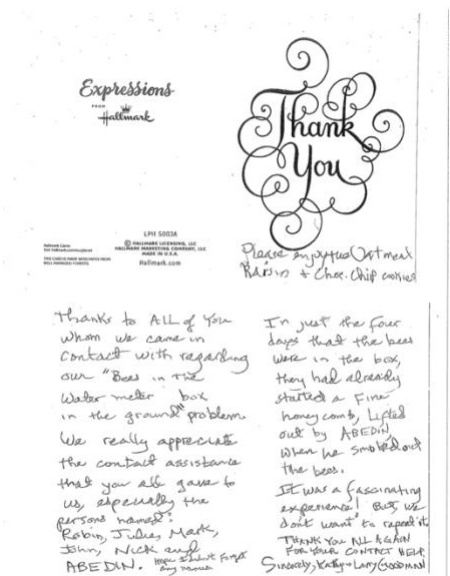 Expressions
FROM
Hallmark
Thank
You
LPH 5003A
HALLMARK LICENSING, LLC
HALLMARK MARKETING COMPANY, LLC
MADE IN U.S.A.
Hallmark.com
Please enjoy the Oatmeal
Raisin + Choc. Chip cookies
Thanks to ALL of You
whom we came in
contact with regarding
our "Bees in the
Water meter box
in the ground" problem.
We really appreciate
the contact assistance
that you all gave to
us, especially the
persons named:
Robin, Julie, Mark,
John, Nick and
ABEDIN. Hope I didn't forget
any names
In just the four
days that the bees
were in the box,
they had already
started a fine
honey comb, Lifted
out by ABEDIN,
when he smoked out
the bees.
It was a fascinating
experience! But, we
don't want to repeat it
THANK YOU ALL AGAIN
FOR YOUR CONTACT HELP,
Sincerely, Kathy + Larry GOODMAN